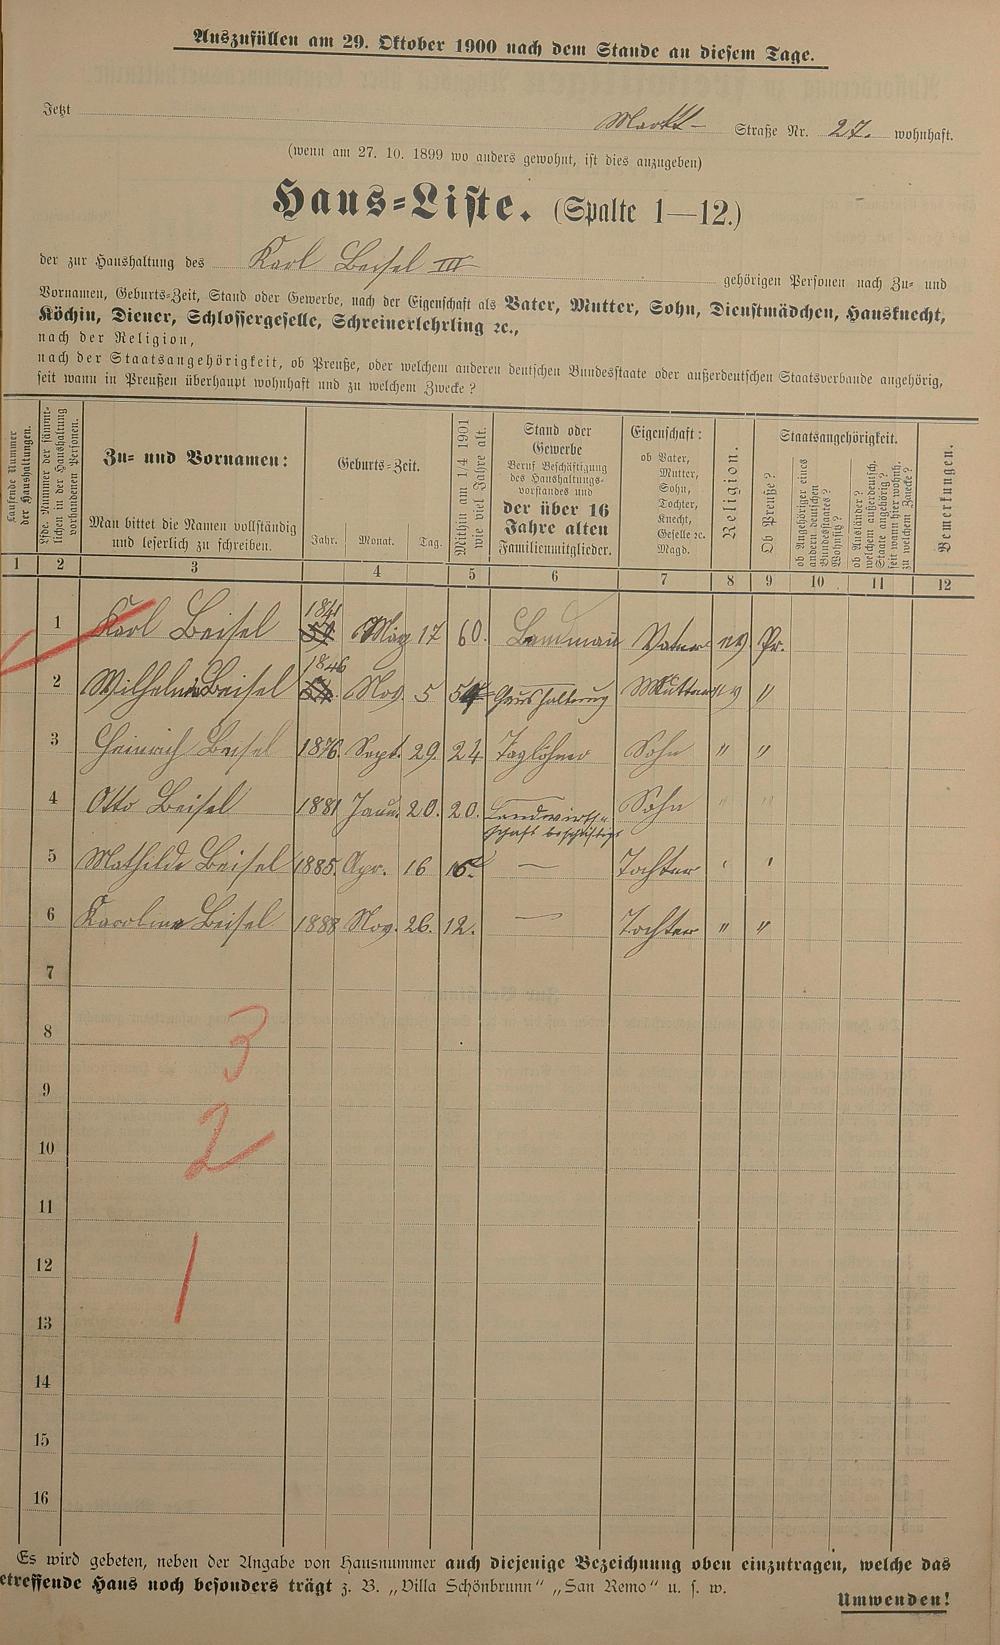 Auszufüllen am 29. Oktober 1900 nach dem Stande an diesem Tage.
Jetzt Markt- Straße Nr. 27. wohnhaft.
(wenn am 27. 10. 1899 wo anders gewohnt, ist dies anzugeben)
Haus-Liste. (Spalte 1—12.)
der zur Haushaltung des Karl Beisel III gehörigen Personen nach Zu- und
Vornamen, Geburts-Zeit, Stand oder Gewerbe, nach der Eigenschaft als Vater, Mutter, Sohn, Dienstmädchen, Hausknecht,
Köchin, Diener, Schlossergeselle, Schreinerlehrling ꝛc.,
nach der Religion,
nach der Staatsangehörigkeit, ob Preuße, oder welchem anderen deutschen Bundesstaate oder außerdeutschen Staatsverbande angehörig,
seit wann in Preußen überhaupt wohnhaft und zu welchem Zwecke?
Laufende Nummer
der Haushaltungen.
Lfde. Nummer der sämmt-
lichen in der Haushaltung
vorhandenen Personen.
Zu- und Vornamen:
Man bittet die Namen vollständig
und leserlich zu schreiben.
Geburts-Zeit.
Jahr. Monat. Tag.
Mithin am 1/4 1901
wie viel Jahre alt.
Stand oder
Gewerbe
Beruf Beschäftigung
des Haushaltungs-
vorstandes und
der über 16
Jahre alten
Familienmitglieder.
Eigenschaft:
ob Vater,
Mutter,
Sohn,
Tochter,
Knecht,
Geselle ꝛc.
Magd.
Religion.
Staatsangehörigkeit.
Ob Preuße?
ob Angehöriger eines
andern deutschen
Bundesstaates?
Wohnsitz?
ob Ausländer?
welchem außerdeutsch.
Staate angehörig?
seit wann hier wohnh.
zu welchem Zwecke?
Bemerkungen.
1 2 3 4 5 6 7 8 9 10 11 12
1 Karl Beisel 1841 May 17 60. Landman Vater ev. Pr.
2 Wilhelmine Beisel 1846 Nov. 5 54 Haushaltung Mutter ev "
3 Heinrich Beisel 1876. Sept. 29. 24 Taglöhner Sohn " "
4 Otto Beisel 1881 Janu. 20. 20. Landwirth-
schaft beschäftigt Sohn " "
5 Mathilde Beisel 1885. Apr. 16 15. — Tochter " "
6 Karoline Beisel 1888 Nov. 26. 12. — Tochter " "
7
8
3
9
10
2
11
12
1
13
14
15
16
Es wird gebeten, neben der Angabe von Hausnummer auch diejenige Bezeichnung oben einzutragen, welche das
etreffende Haus noch besonders trägt z. B. „Villa Schönbrunn" „San Remo" u. s. w.
Umwenden!